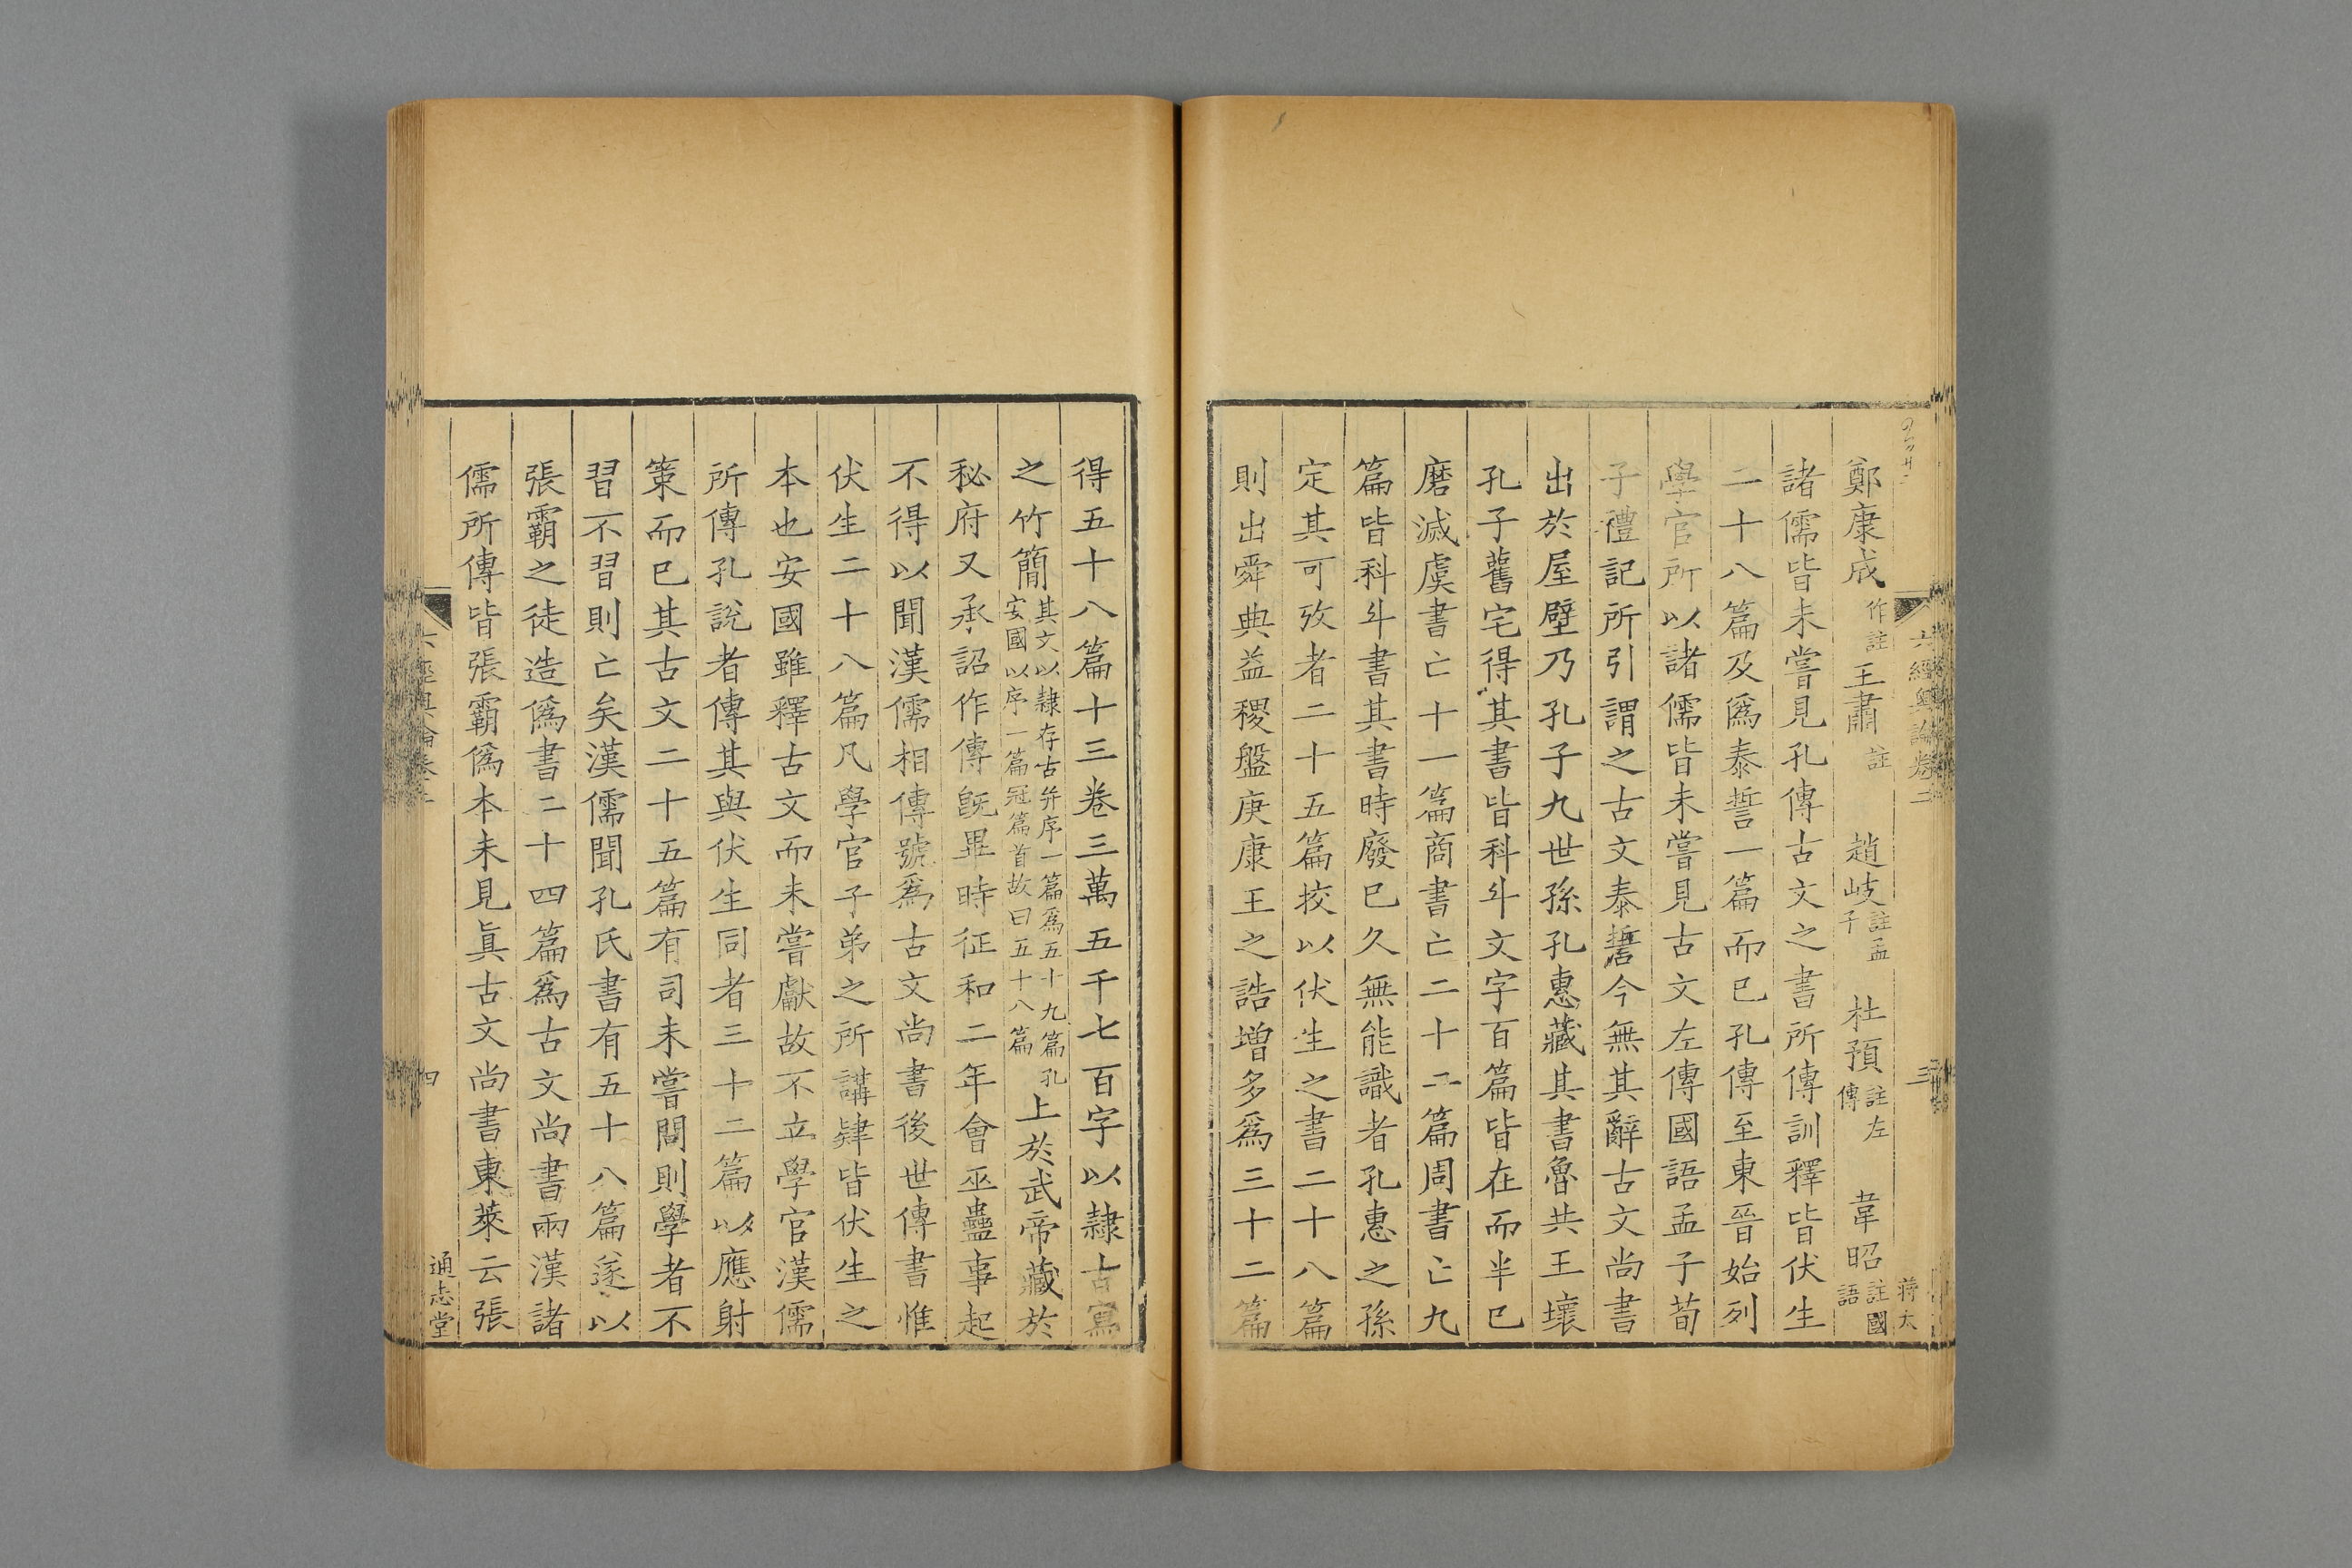 鄭康成作註王肅註趙岐註孟子杜預註左傳韋昭註國語
諸儒皆未嘗見孔傳古文之書所傳訓釋皆伏生
二十八篇及僞泰誓一篇而已孔傳至東晉始列
學官所以諸儒皆未嘗見古文左傳國語孟子荀
子禮記所引謂之古文泰誓今無其辭古文尚書
出於屋壁乃孔子九世孫孔惠藏其書魯共王壞
孔子舊宅得其書皆科斗文字百篇皆在而半已
磨滅虞書亡十一篇商書亡二十二篇周書亡九
篇皆科斗書其書時廢已久無能識者孔惠之孫
定其可攷者二十五篇挍以伏生之書二十八篇
則出舜典益稷盤庚康王之誥增多爲三十二篇
六經奧論卷二
三
蔣太
得五十八篇十三卷三萬五千七百字以隷古寫
之竹簡其文以隸存古并序一篇爲五十九篇孔安國以序一篇冠篇首故曰五十八篇上於武帝藏於
秘府又承詔作傳旣畢時征和二年會巫蠱事起
不得以聞漢儒相傳號爲古文尚書後世傳書惟
伏生二十八篇凡學官子弟之所講肄皆伏生之
本也安國雖釋古文而未嘗獻故不立學官漢儒
所傳孔說者傳其與伏生同者三十二篇以應射
策而已其古文二十五篇有司未嘗問則學者不
習不習則亡矣漢儒聞孔氏書有五十八篇遂以
張霸之徒造僞書二十四篇爲古文尚書兩漢諸
儒所傳皆張霸僞本未見眞古文尚書東萊云張
六經奧論卷二
四
通志堂